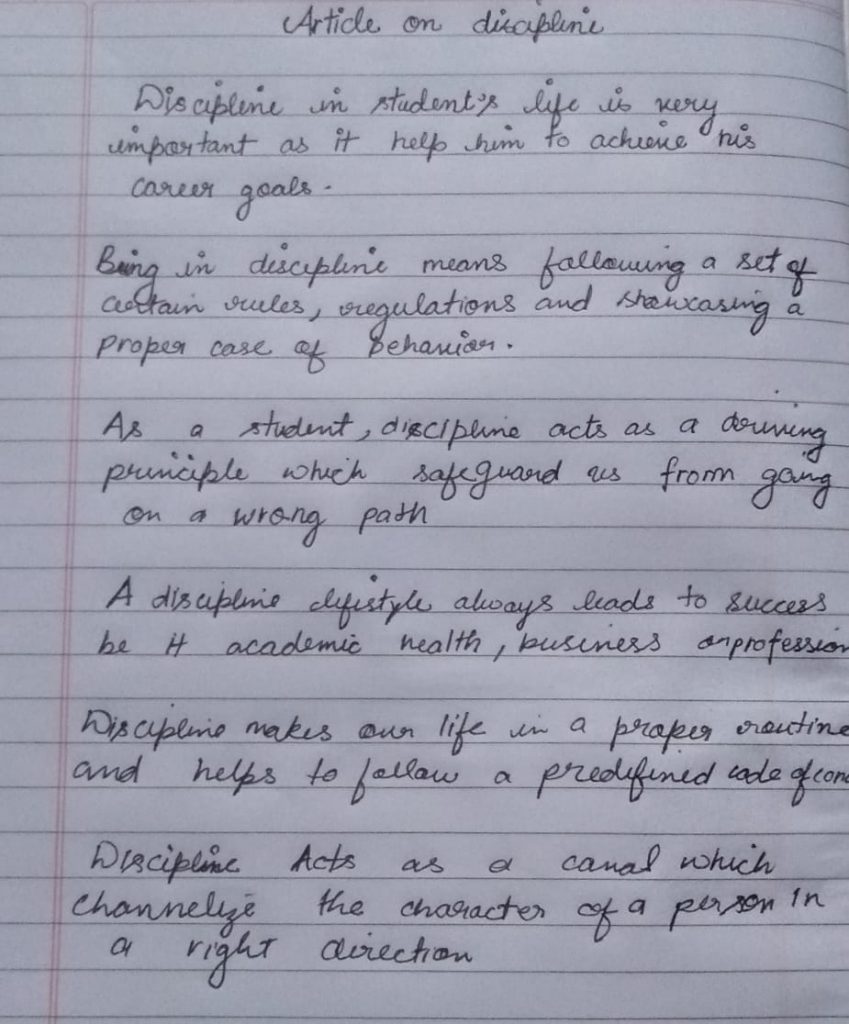 Article on discipline
Discipline in student's life is very
important as it help him to achieve his
career goals.
Being in discipline means following a set of
certain rules, regulations and showcasing a
proper case of behavior.
As a student, discipline acts as a driving
principle which safeguard us from going
on a wrong path
A discipline lifestyle always leads to success
be it academic health, business or profession
Discipline makes our life in a proper routine
and helps to follow a predefined code of con
Discipline Acts as a canal which
channelize the character of a person in
a right direction